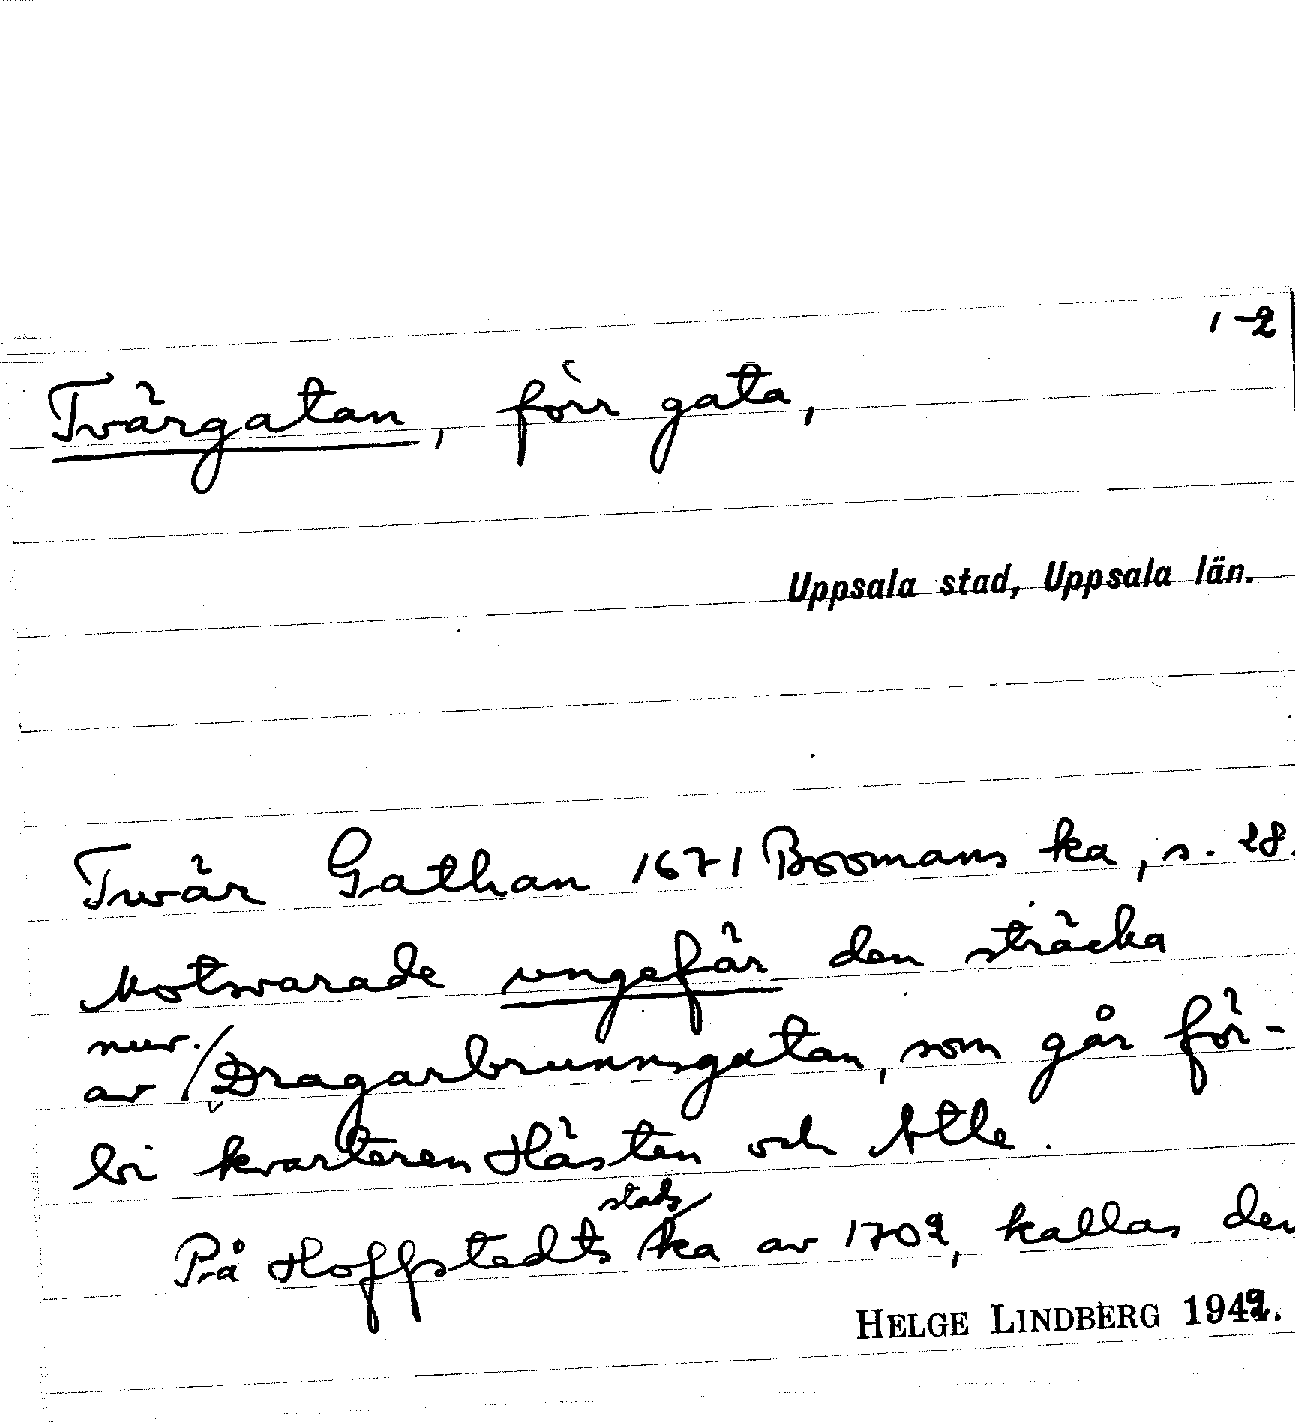 1-2
Tvärgatan, förr gata,
Uppsala stad, Uppsala län.
Twär Gathan 1671 Boomans ka, s. 28.
Motsvarade ungefär den sträcka
av nuv. Dragarbrunnsgatan, som går för-
bi kvarteren Hästen och Atle.
På Hoffstedts stadska av 1702, kallas den
HELGE LINDBERG 1949.